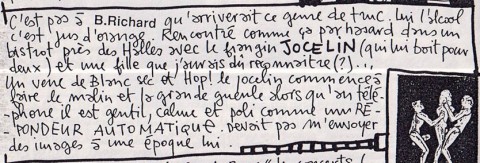 C'est pas à B.Richard qu'arriverait ce genre de truc. lui l'alcool
c'est jus d'orange. Rencontré comme ça par hasard dans un
bistrot près des Halles avec le frangin JOCELIN (qui lui boit pour
deux) et une fille que j'aurais dû reconnaitre (?)...
Un verre de Blanc sec et Hop! le Jocelin commence à
faire le malin et la grande gueule alors qu'au télé-
phone il est gentil, calme et poli comme un RÉ-
PONDEUR AUTOMATIQUE. Devait pas m'envoyer
des images à une époque lui.